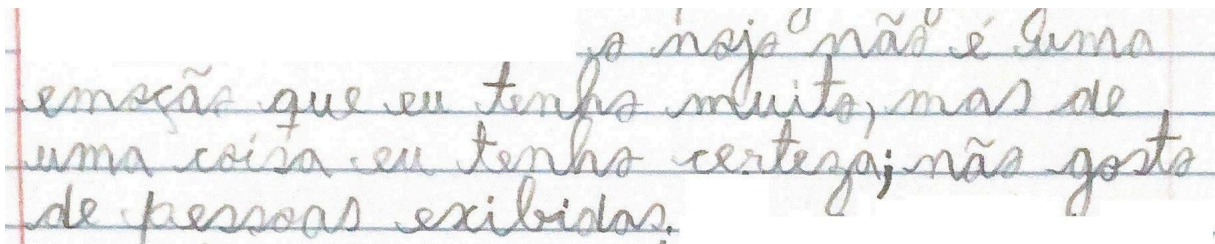 o nojo não é uma
emoção que eu tenho muito, mas de
uma coisa eu tenho certeza; não gosto
de pessoas exibidas.